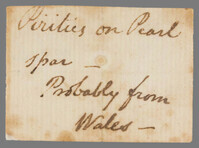 Pirities on Pearl
spar —
Probably from
Wales —